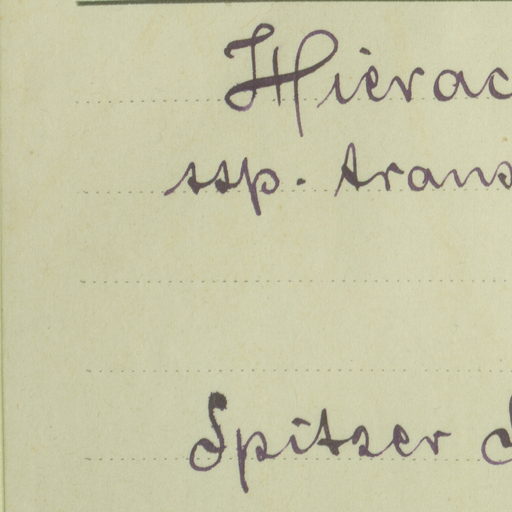 Hierac
ssp. trans
Spitzer S